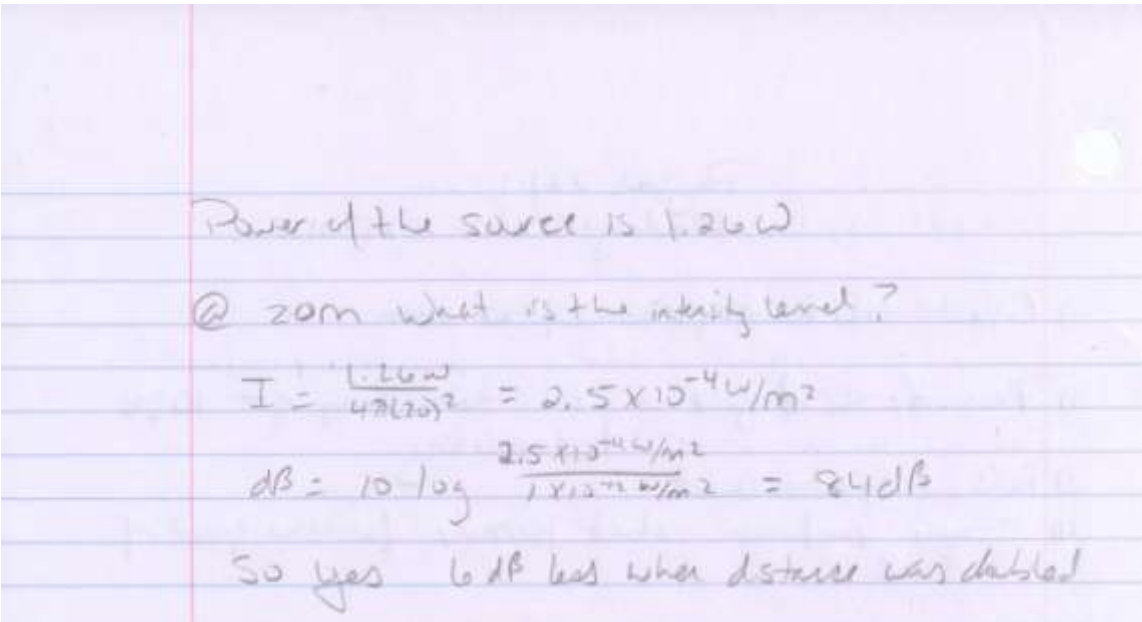 Power of the source is 1.26W
@ 20m what is the intensity level?
I = 1.26W / 4π(20)² = 2.5 x 10⁻⁴ W/m²
dB = 10 log 2.5 x 10⁻⁴ W/m² / 1 x 10⁻¹² W/m² = 84dB
So yes 6 dB less when distance was doubled